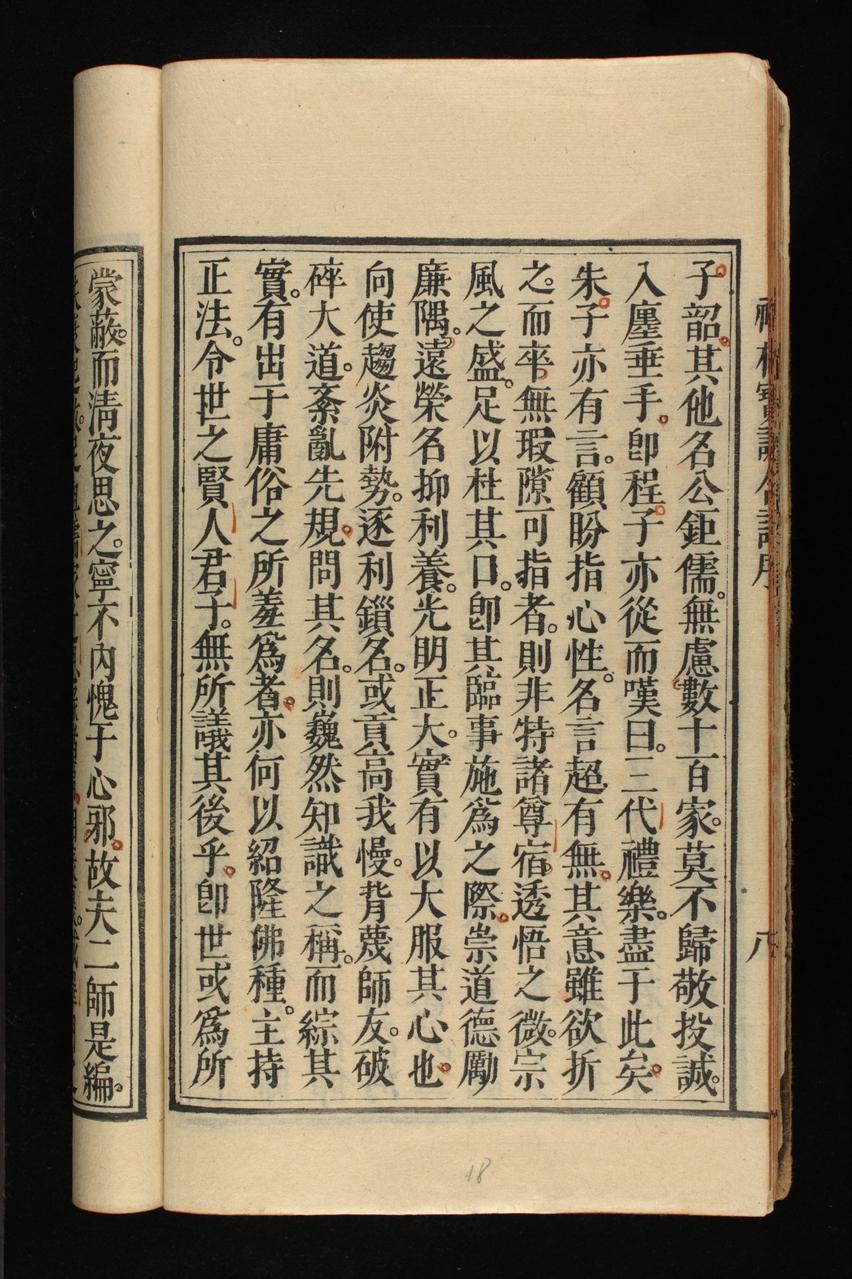 子韶。其他名公鉅儒。無慮數十百家。莫不歸敬投誠。
入廛垂手。卽程子亦從而嘆曰。三代禮樂。盡于此矣。
朱子亦有言。顧盼指心性。名言超有無。其意雖欲折
之。而卒無瑕隙可指者。則非特諸尊宿。透悟之微。宗
風之盛。足以杜其口。卽其臨事施爲之際。崇道德勵
廉隅。遠榮名抑利養。光明正大。實有以大服其心也。
向使趨炎附勢。逐利鎖名。或貢高我慢。背蔑師友。破
碎大道。紊亂先規。問其名。則巍然知識之稱。而綜其
實。有出于庸俗之所羞爲者。亦何以紹隆佛種。主持
正法。令世之賢人君子。無所議其後乎。卽世或爲所
蒙蔽。而清夜思之。寧不內愧于心邪。故夫二師是編。
八
18